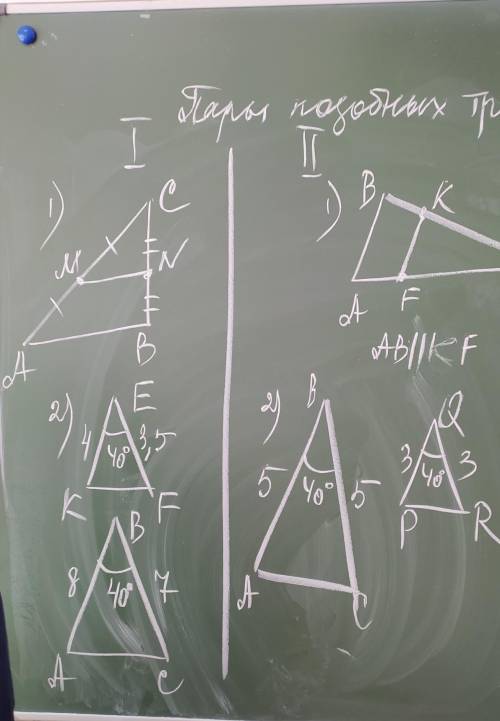 Пары подобных тр
I
II
1)
C
M
N
A
B
1)
B
K
A
F
AB||KF
2)
E
4
40°
3,5
K
F
B
8
40°
7
A
C
2)
B
5
40°
5
A
C
Q
3
40°
3
P
R